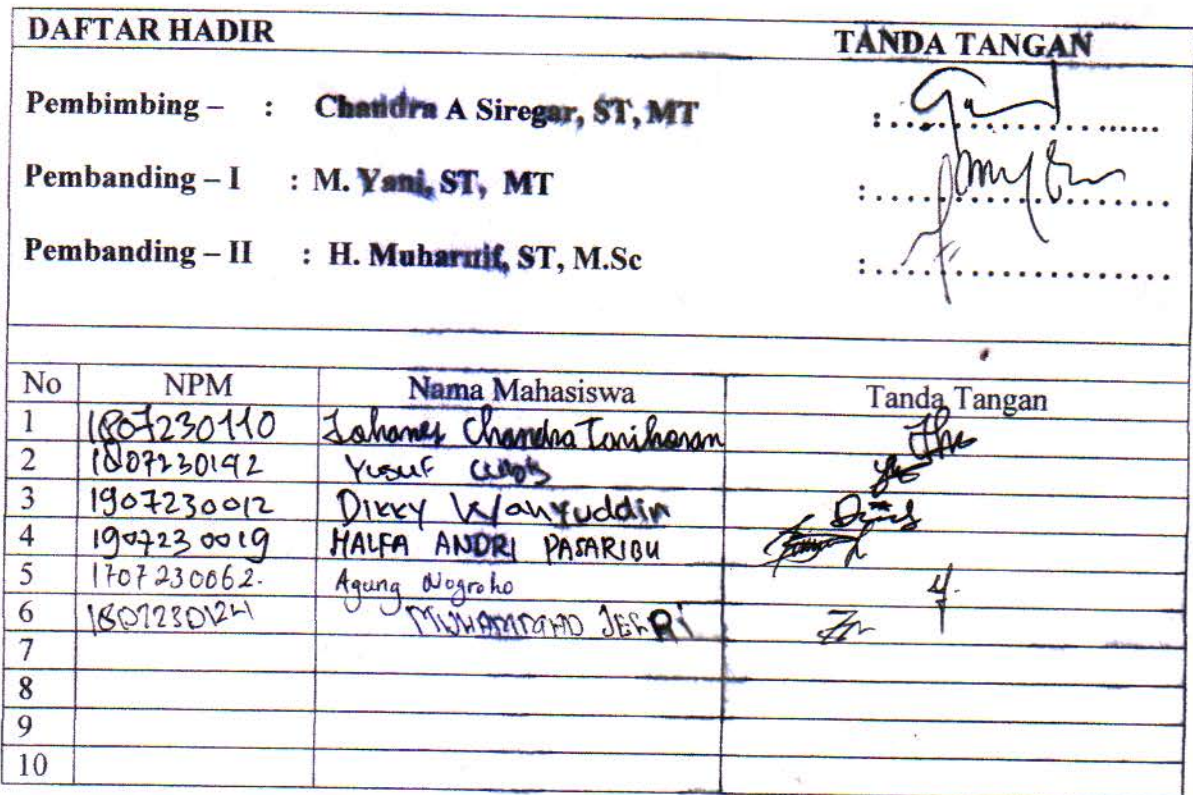 DAFTAR HADIR TANDA TANGAN
Pembimbing – : Chandra A Siregar, ST, MT : ....................
Pembanding – I : M. Yani, ST, MT : ....................
Pembanding – II : H. Muharnif, ST, M.Sc : ....................
No NPM Nama Mahasiswa Tanda Tangan
1 1807230110 Chandra
2 1807230192 Yusuf
3 1907230012 Dikky Wahyuddin
4 1907230019 HALFA ANDRI PASARIBU
5 1707230062. Agung Nogroho
6 1807230124 MUHAMMAD JEFRi
7
8
9
10